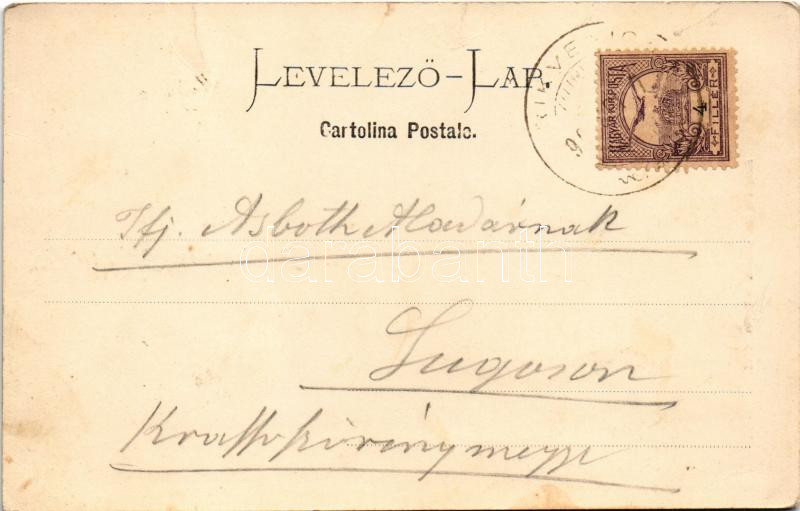 LEVELEZŐ-LAP.
Cartolina Postale.
MAGYAR KIR. POSTA
4
FILLÉR
Ifj. Asboth Aladárnak
darabanth
Lugoson
Krassószörénymegye